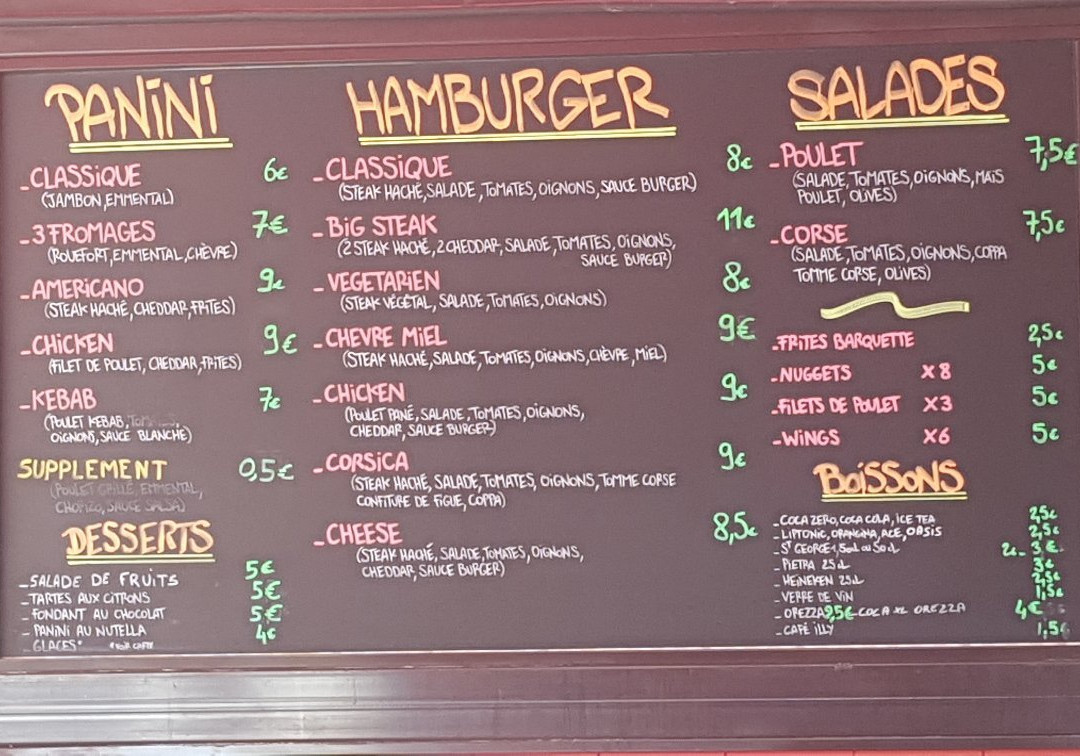 PANiNi
_CLASSiQUE 6€
(JAMBON, EMMENTAL)
_3 FROMAGES 7€
(ROUEFORT, EMMENTAL, CHÈVRE)
_AMERICANO 9€
(STEAK HACHÉ, CHEDDAR, FRITES)
_CHiCKEN 9€
(FILET DE POULET, CHEDDAR, FRITES)
_KEBAB 7€
(POULET KEBAB,
OIGNONS, SAUCE BLANCHE)
SUPPLEMENT 0,5€
(POULET GRILLÉ, EMMENTAL,
CHORIZO, SAUCE SALSA)
DESSERTS
_SALADE DE FRUITS 5€
_TARTES AUX CITRONS 5€
_FONDANT AU CHOCOLAT 5€
_PANINI AU NUTELLA 4€
_GLACES* *VOIR CARTE
HAMBURGER
_CLASSiQUE 8€
(STEAK HACHÉ, SALADE, TOMATES, OIGNONS, SAUCE BURGER)
_BiG STEAK 11€
(2 STEAK HACHÉ, 2 CHEDDAR, SALADE, TOMATES, OIGNONS,
SAUCE BURGER)
_VEGETARiEN 8€
(STEAK VÉGÉTAL, SALADE, TOMATES, OIGNONS)
_CHEVRE MiEL 9€
(STEAK HACHÉ, SALADE, TOMATES, OIGNONS, CHÈVRE, MIEL)
_CHiCKEN 9€
(POULET PANÉ, SALADE, TOMATES, OIGNONS,
CHEDDAR, SAUCE BURGER)
_CORSiCA 9€
(STEAK HACHÉ, SALADE, TOMATES, OIGNONS, TOMME CORSE
CONFITURE DE FIGUE, COPPA)
_CHEESE 8,5€
(STEAK HACHÉ, SALADE, TOMATES, OIGNONS,
CHEDDAR, SAUCE BURGER)
SALADES
_POULET 7,5€
(SALADE, TOMATES, OIGNONS, MAÏS
POULET, OLIVES)
_CORSE 7,5€
(SALADE, TOMATES, OIGNONS, COPPA
TOMME CORSE, OLIVES)
_FRITES BARQUETTE 2,5€
_NUGGETS X8 5€
_FILETS DE POULET X3 5€
_WINGS X6 5€
BOiSSONS
_COCA ZERO, COCA COLA, ICE TEA 2,5€
_LIPTONIC, ORANGINA, ACE, OASIS 2,5€
_ST GEORGE 1,5L OU 50cL 2€_3€
_PIETRA 25cL 3€
_HEINEKEN 25cL 2,5€
_VERRE DE VIN 1,5€
_OREZZA COCA XL OREZZA 4€
_CAFÉ ILLY 1,5€